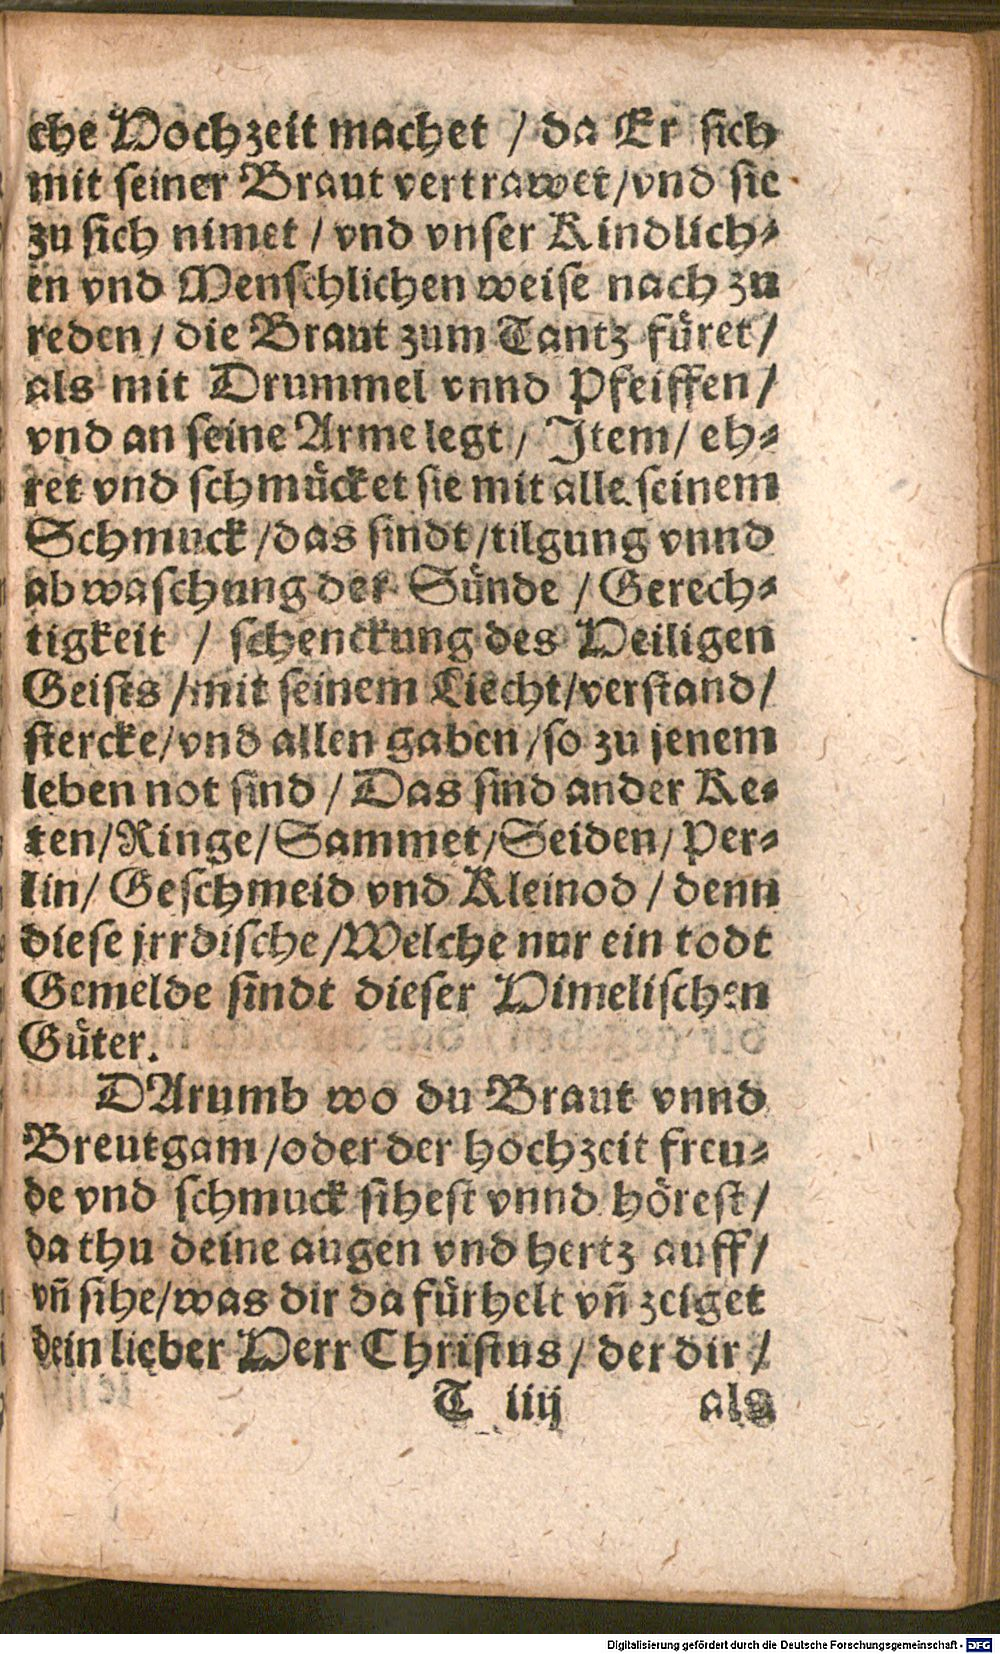 che Hochzeit machet / da Er sich
mit seiner Braut vertrawet/vnd sie
zu sich nimet / vnd vnser Kindlich-
en vnd Menschlichen weise nach zu
reden / die Braut zum Tantz füret /
als mit Drummel vnnd Pfeiffen /
vnd an seine Arme legt / Item / eh-
ret vnd schmücket sie mit alle seinem
Schmuck / das sindt / tilgung vnnd
abwaschung der Sünde / Gerech-
tigkeit / schenckung des Heiligen
Geists / mit seinem Liecht/verstand/
stercke/vnd allen gaben /so zu jenem
leben not sind / Das sind ander Ke-
ten/Ringe/Sammet/Seiden/Per-
lin/ Geschmeid vnd Kleinod / denn
diese jrrdische/Welche nur ein todt
Gemelde sindt dieser Himelischen
Güter.
DArumb wo du Braut vnnd
Breutgam /oder der hochzeit freu-
de vnd schmuck sihest vnnd hörest /
da thu deine augen vnd hertz auff /
vñ sihe/was dir da fürhelt vñ zeiget
dein lieber Herr Christus / der dir /
T iiij als
Digitalisierung gefördert durch die Deutsche Forschungsgemeinschaft - DFG